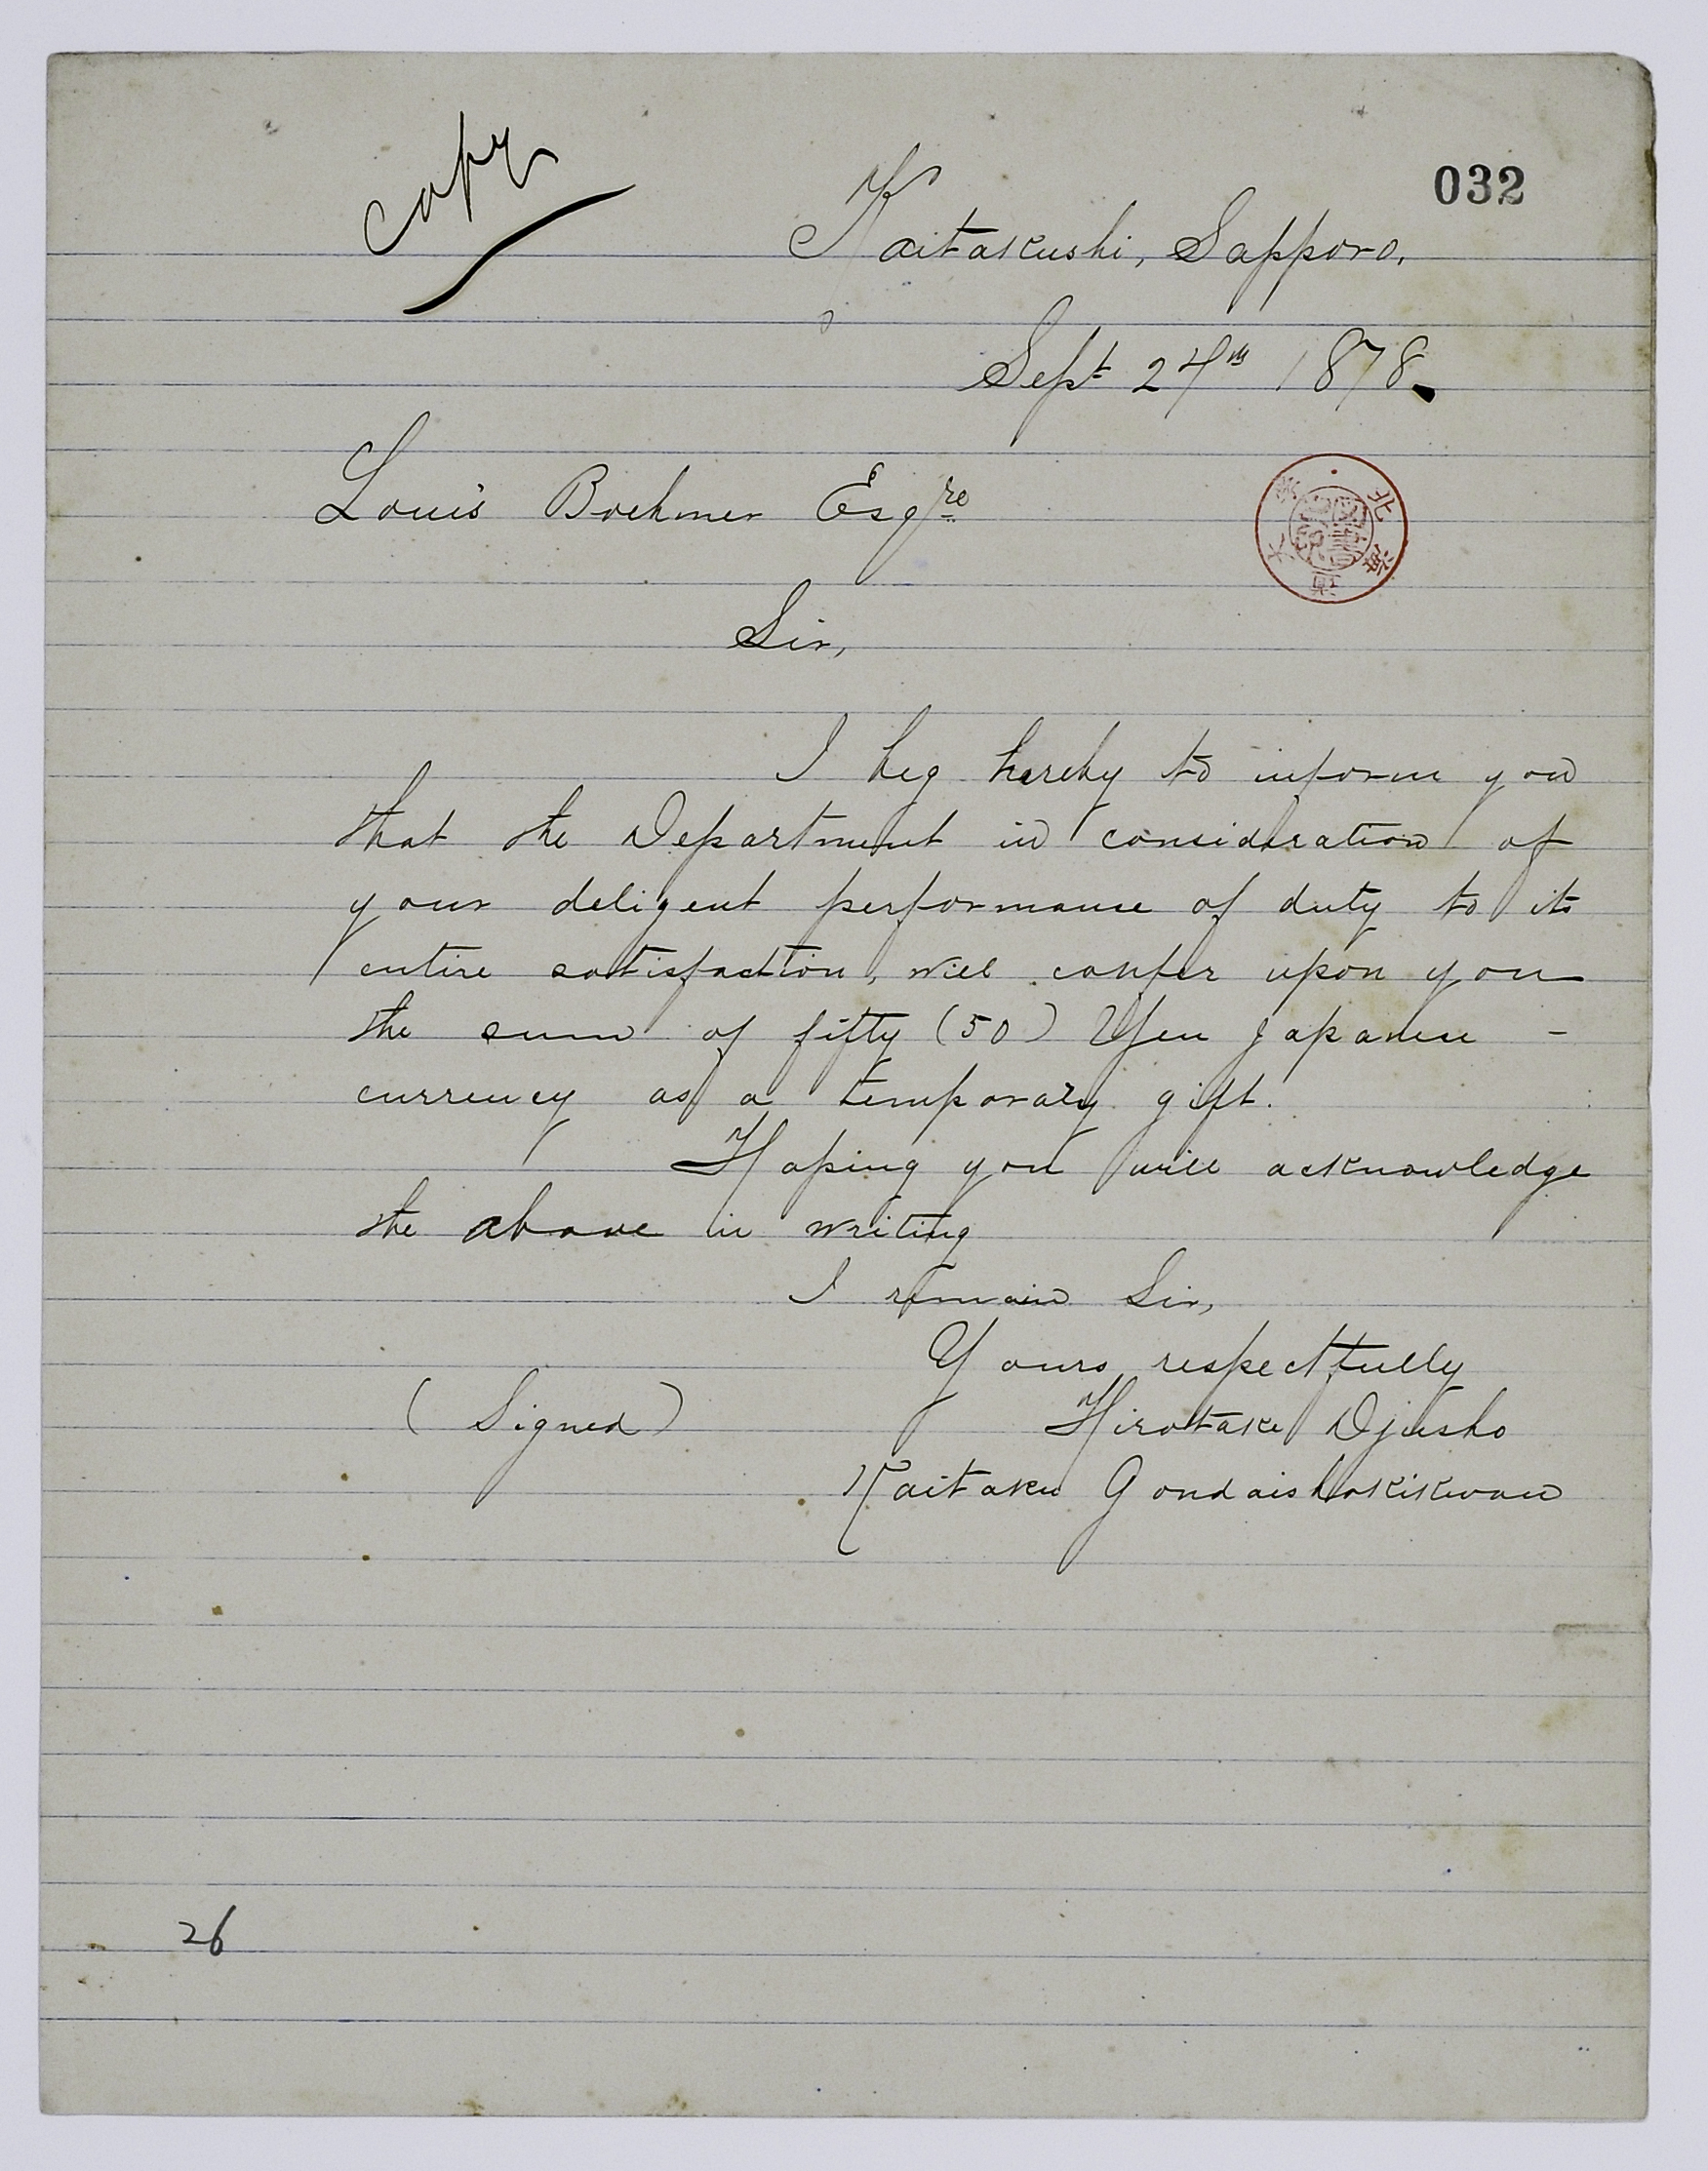 copy
032
Kaitakushi, Sapporo,
Sept 24th 1878.
Louis Boehmer Esqre
北海道大學
圖書
Sir,
I beg hereby to inform you
that the Department in consideration of
your deligent performance of duty to its
entire satisfaction, will confer upon you
the sum of fifty (50) Yen Japanese -
currency as a temporary gift.
Hoping you will acknowledge
the above in writing
I remain Sir,
Yours respectfully
(Signed) Hirotake Djusho
Kaitaku Gondaishokikwan
26